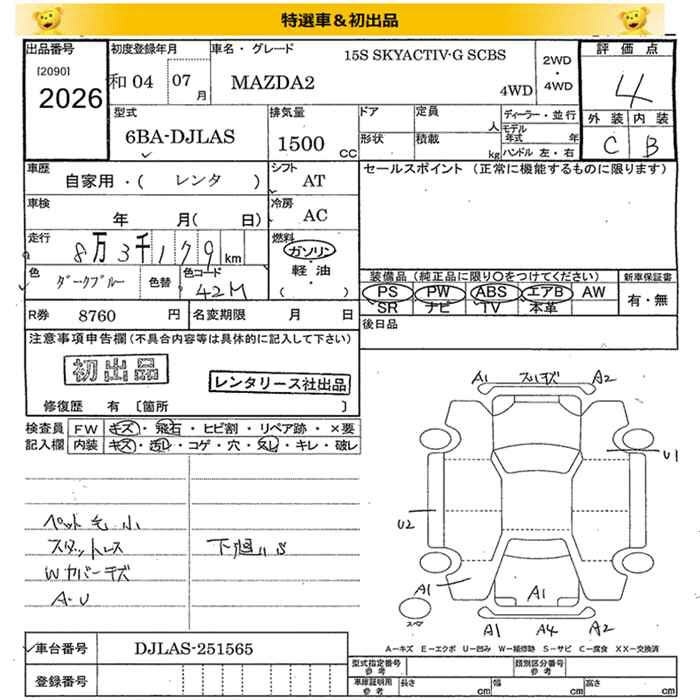 特選車&初出品
出品番号
[2090]
2026
初度登録年月
和04 07月
車名・グレード
15S SKYACTIV-G SCBS
MAZDA2
4WD
2WD・4WD
評価点
4
外装 内装
C B
型式
6BA-DJLAS
排気量
1500 CC
ドア
形状
定員 人
積載 kg
ディーラー・並行
モデル年式 年
ハンドル 左・右
車歴
自家用・( レンタ )
シフト
AT
セールスポイント (正常に機能するものに限ります)
車検
年 月( 日)
冷房
AC
走行
8万3千179km
燃料
ガソリン
軽油
・( )
色
ダークブルー
色替
色コード
42M
装備品 (純正品に限り○をつけてください)
PS PW ABS エアB AW
SR ナビ TV 本革
新車保証書
有・無
R券 8760 円
名変期限 月 日
後日品
注意事項申告欄(不具合内容等は具体的に記入して下さい)
初出品
レンタリース社出品
修復歴 有 [箇所 ]
検査員記入欄
FW キズ・飛石・ヒビ割・リペア跡・×要
内装 キズ・汚レ・コゲ・穴・欠レ・キレ・破レ
ペット毛小
スタットレス
下廻りS
Wカバーキズ
A・U
A1 スリキズ A2
U1
U2
A1
A1
スマ
A1 A4 A2
A-キズ E-エクボ U-凹み W-補修跡 S-サビ C-腐食 XX-交換済
車台番号 DJLAS-251565
登録番号
型式指定番号参考
類別区分番号参考
車庫証明用参考
長さ cm 幅 cm 高さ cm